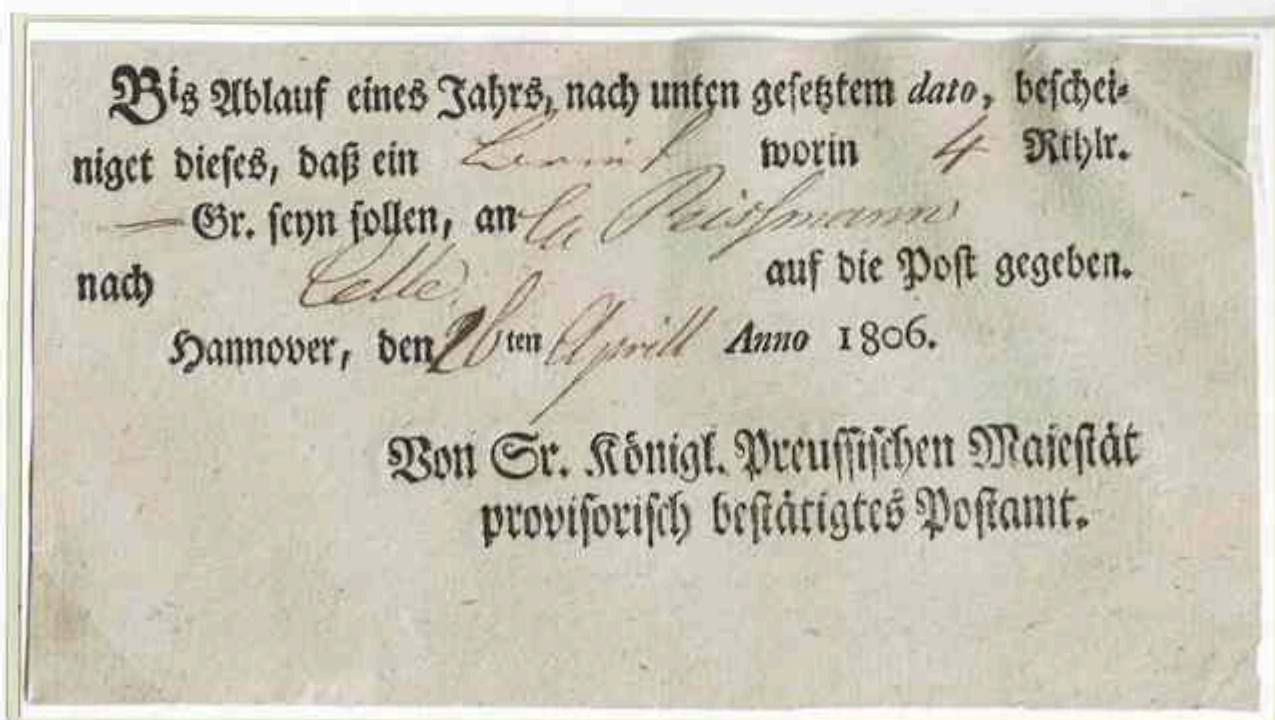 Bis Ablauf eines Jahrs, nach unten gesetztem dato, beschei-
niget dieses, daß ein worin 4 Rthlr.
— Gr. seyn sollen, an
nach Celle. auf die Post gegeben.
Hannover, den 26ten Aprill Anno 1806.
Von Sr. Königl. Preussischen Majestät
provisorisch bestätigtes Postamt.